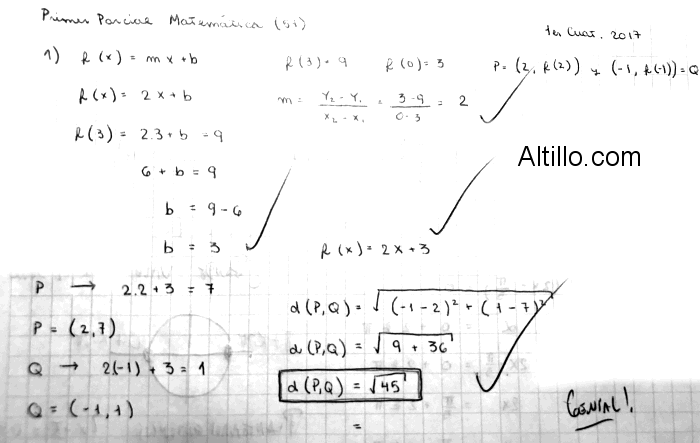 Primer Parcial Matemática (51)
1er Cuat. 2017
1) f(x) = mx+b
f(3) = 9 f(0) = 3 P = (2, f(2)) y (-1, f(-1)) = Q
f(x) = 2x+b
m = (Y₂ - Y₁)/(X₂ - X₁) = (3-9)/(0-3) = 2
f(3) = 2.3+b = 9
Altillo.com
6 + b = 9
b = 9-6
b = 3
f(x) = 2x+3
P → 2.2+3 = 7
P = (2,7)
Q → 2(-1) + 3 = 1
Q = (-1,1)
d(P,Q) = √((-1-2)² + (1-7)²)
d(P,Q) = √(9 + 36)
d(P,Q) = √45
=
GENIAL!